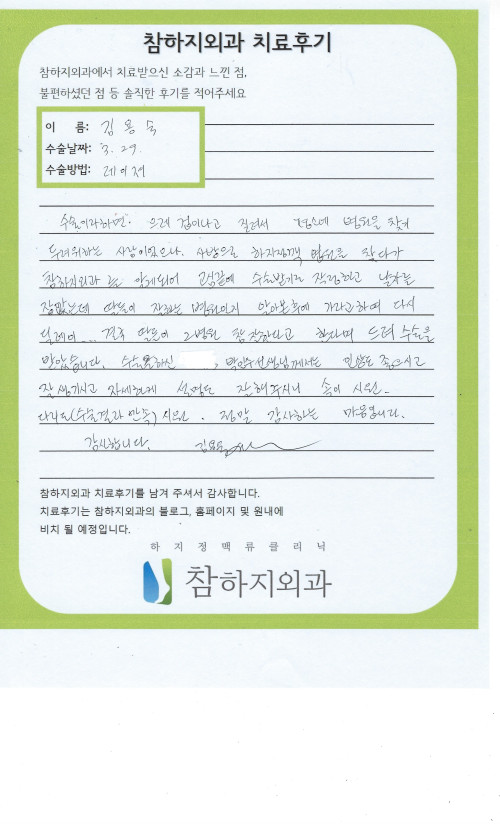 참하지외과 치료후기
참하지외과에서 치료받으신 소감과 느낀 점,
불편하셨던 점 등 솔직한 후기를 적어주세요
이 름: 김용숙
수술날짜: 3. 29.
수술방법: 레이저
수술이라하면. 으레 겁이나고 질려서 평소에 병원을 찾기
두려워하는 사람이었으나. 사방으로 하지정맥 병원을 찾다가
참하지외과를 알게되어 수술받기로 작정하고 날짜를
잡았는데 딸들이 잘하는 병원인지 알아본후에 가라고하여 다시
딜레이... 결국 딸들이 그병원 참 잘한다고 했다며 드뎌 수술을
받았습니다. 수술을하신 , 박인수선생님께서는 인상도 좋으시고
잘생기시고 자세하게 설명도 잘해주시니 속이 시원.
다리도(수술결과 만족) 시원. 정말 감사하는 마음뿐입니다.
감사합니다. 김용숙
참하지외과 치료후기를 남겨 주셔서 감사합니다.
치료후기는 참하지외과의 블로그, 홈페이지 및 원내에
비치 될 예정입니다.
하지정맥류클리닉
참하지외과